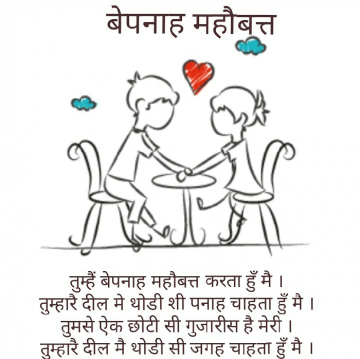 बेपनाह महौबत्त
तुम्हैं बेपनाह महौबत्त करता हुँ मै ।
तुम्हारै दील मे थोडी शी पनाह चाहता हुँ मै ।
तुमसे ऐक छोटी सी गुजारीस है मेरी ।
तुम्हारै दील मै थोडी सी जगह चाहता हुँ मै ।